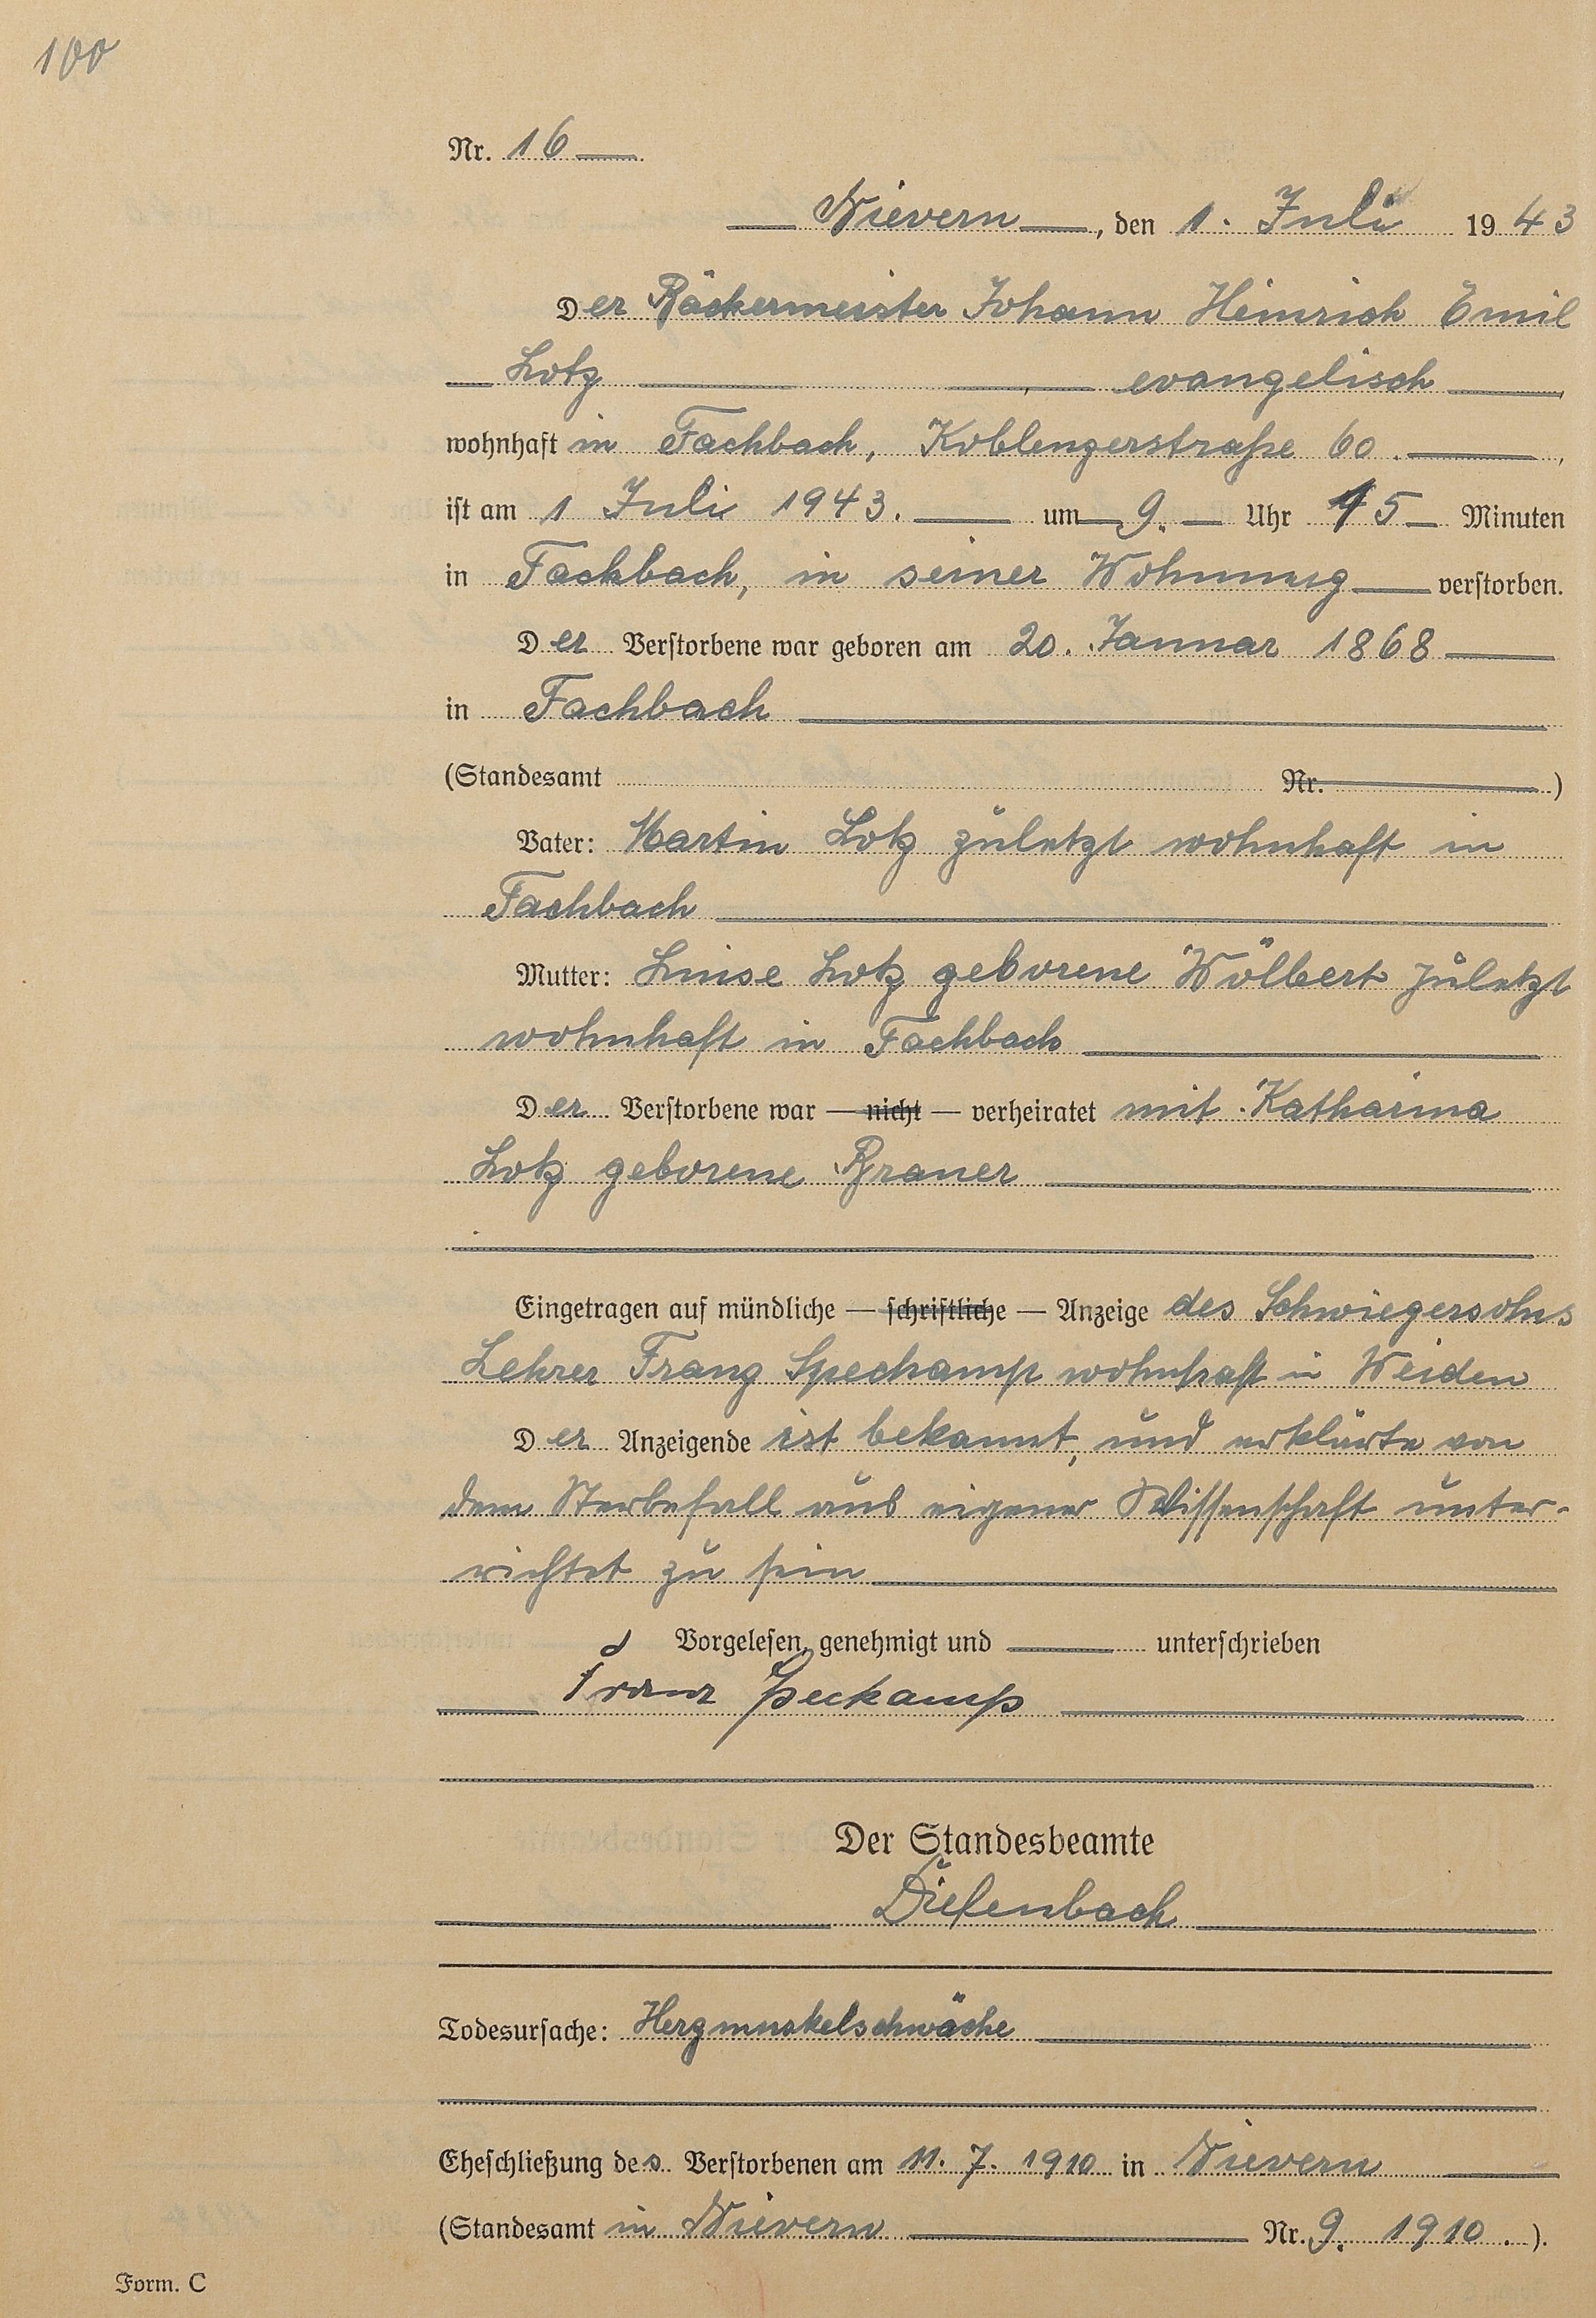 100
Nr. 16
Nievern, den 1. Juli 1943
Der Bäckermeister Johann Heinrich Emil
Lotz evangelisch,
wohnhaft in Fachbach, Koblenzerstraße 60.,
ist am 1 Juli 1943. um 9. Uhr 15 Minuten
in Fachbach, in seiner Wohnung verstorben.
Der Verstorbene war geboren am 20. Januar 1868
in Fachbach
(Standesamt Nr. )
Vater: Martin Lotz zuletzt wohnhaft in
Fachbach
Mutter: Luise Lotz geborene Wölbert zuletzt
wohnhaft in Fachbach
Der Verstorbene war — nicht — verheiratet mit Katharina
Lotz geborene Brauer
Eingetragen auf mündliche — schriftliche — Anzeige des Schwiegersohns
Lehrer Franz Speckamp wohnhaft in Weiden
Der Anzeigende ist bekannt, und erklärte von
dem Sterbefall aus eigener Wissenschaft unter-
richtet zu sein
Vorgelesen, genehmigt und unterschrieben
Franz Speckamp
Der Standesbeamte
Diefenbach
Todesursache: Herzmuskelschwäche
Eheschließung des Verstorbenen am 11. 7. 1910 in Nievern
(Standesamt in Nievern Nr. 9. 1910.).
Form. C